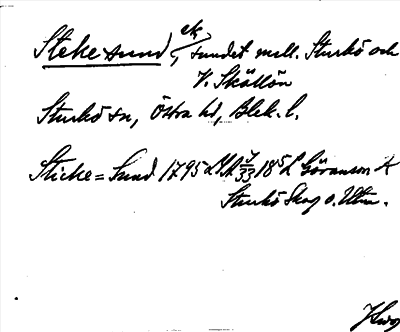 Steke sund, ek, sundet mell. Sturkö och
V. Skällön
Sturkö sn, Östra hd, Blek. l.
Sticke = Sund 1795 LSA 18 L Göranson K
Sturkö Skog o. Utm.